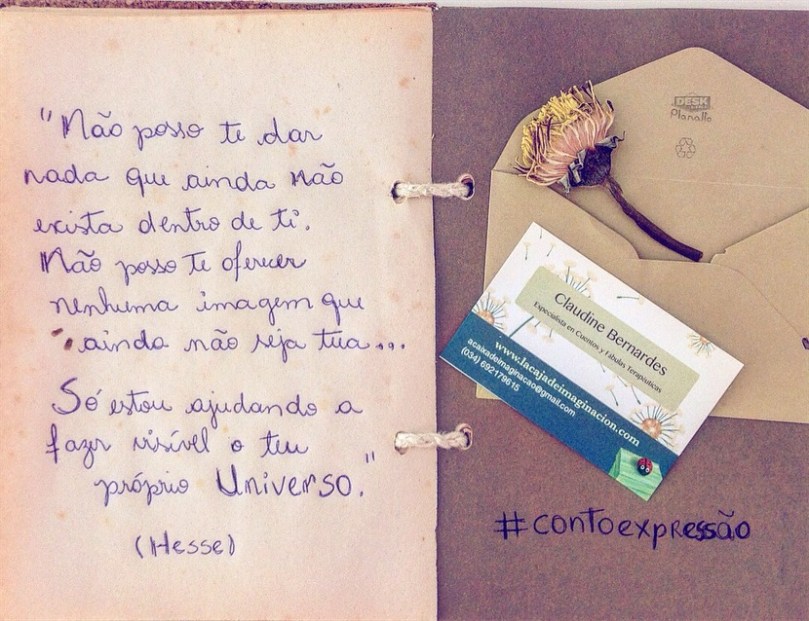 "Não posso te dar
nada que ainda não
exista dentro de ti.
Não posso te oferecer
nenhuma imagem que
ainda não seja tua...
Só estou ajudando a
fazer visível o teu
próprio Universo."
(Hesse)
DESK
Planalto
Claudine Bernardes
Especialista en Cuentos y Fábulas Terapéuticas
www.lacajadeimaginacion.com
acaixadeimaginacao@gmail.com
(034) 692179815
#contoexpressão